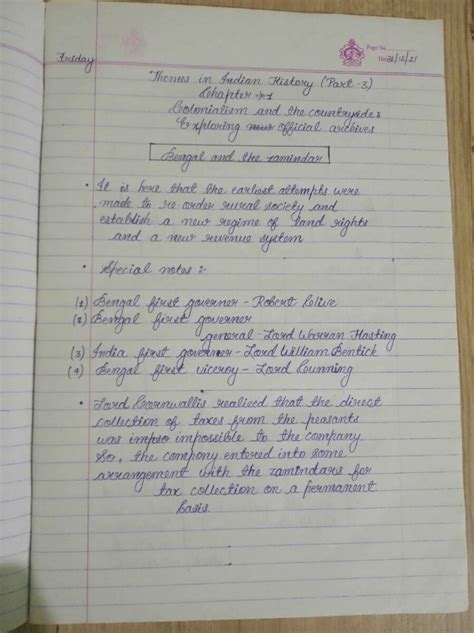 Page No.
Friday
Date 31/12/21
Themes in Indian History (Part-3)
Chapter → 1
Colonialism and the countryside :
Exploring official archives
Bengal and the zamindar
• It is here that the earliest attempts were
made to re order rural society and
establish a new regime of land rights
and a new revenue system
• Special notes :-
(1) Bengal first governer - Robert Clive
(2) Bengal first governer
general - Lord Warran Hasting
(3) India first governer - Lord William Bentick
(4) Bengal first viceroy - Lord Cunning
• Lord Cornwallis realieed that the direct
collection of taxes from the peasants
was impso impossible to the company.
So, the company entered into some
arrangement with the zamindars for
tax collection on a permanent
basis.